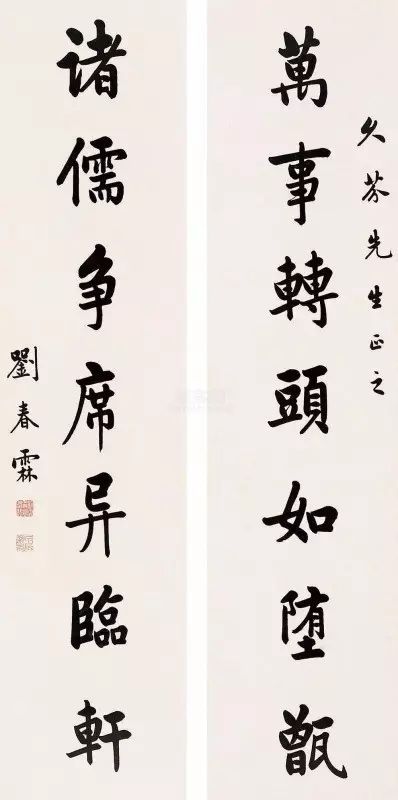 久芬先生正之
萬事轉頭如堕甑
诸儒争席异臨軒
劉春霖